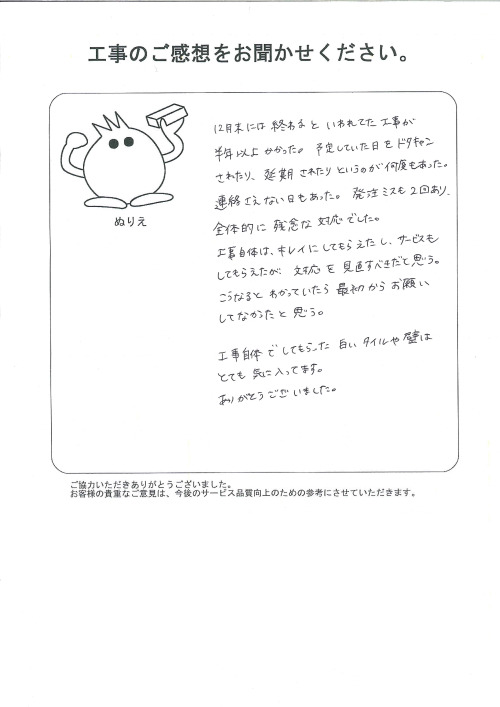 工事のご感想をお聞かせください。
ぬりえ
12月末には終わると いわれてた工事が
半年以上かかった。予定していた日をドタキャン
されたり、延期されたりというのが何度もあった。
連絡さえない日もあった。発注ミスも2回あり、
全体的に残念な対応でした。
工事自体は、キレイにしてもらえたし、サービスも
してもらえたが 対応を見直すべきだと思う。
こうなると わかっていたら 最初から お願い
してなかったと思う。
工事自体でしてもらった 白いタイルや壁は
とても 気に入ってます。
ありがとうございました。
ご協力いただきありがとうございました。
お客様の貴重なご意見は、今後のサービス品質向上のための参考にさせていただきます。